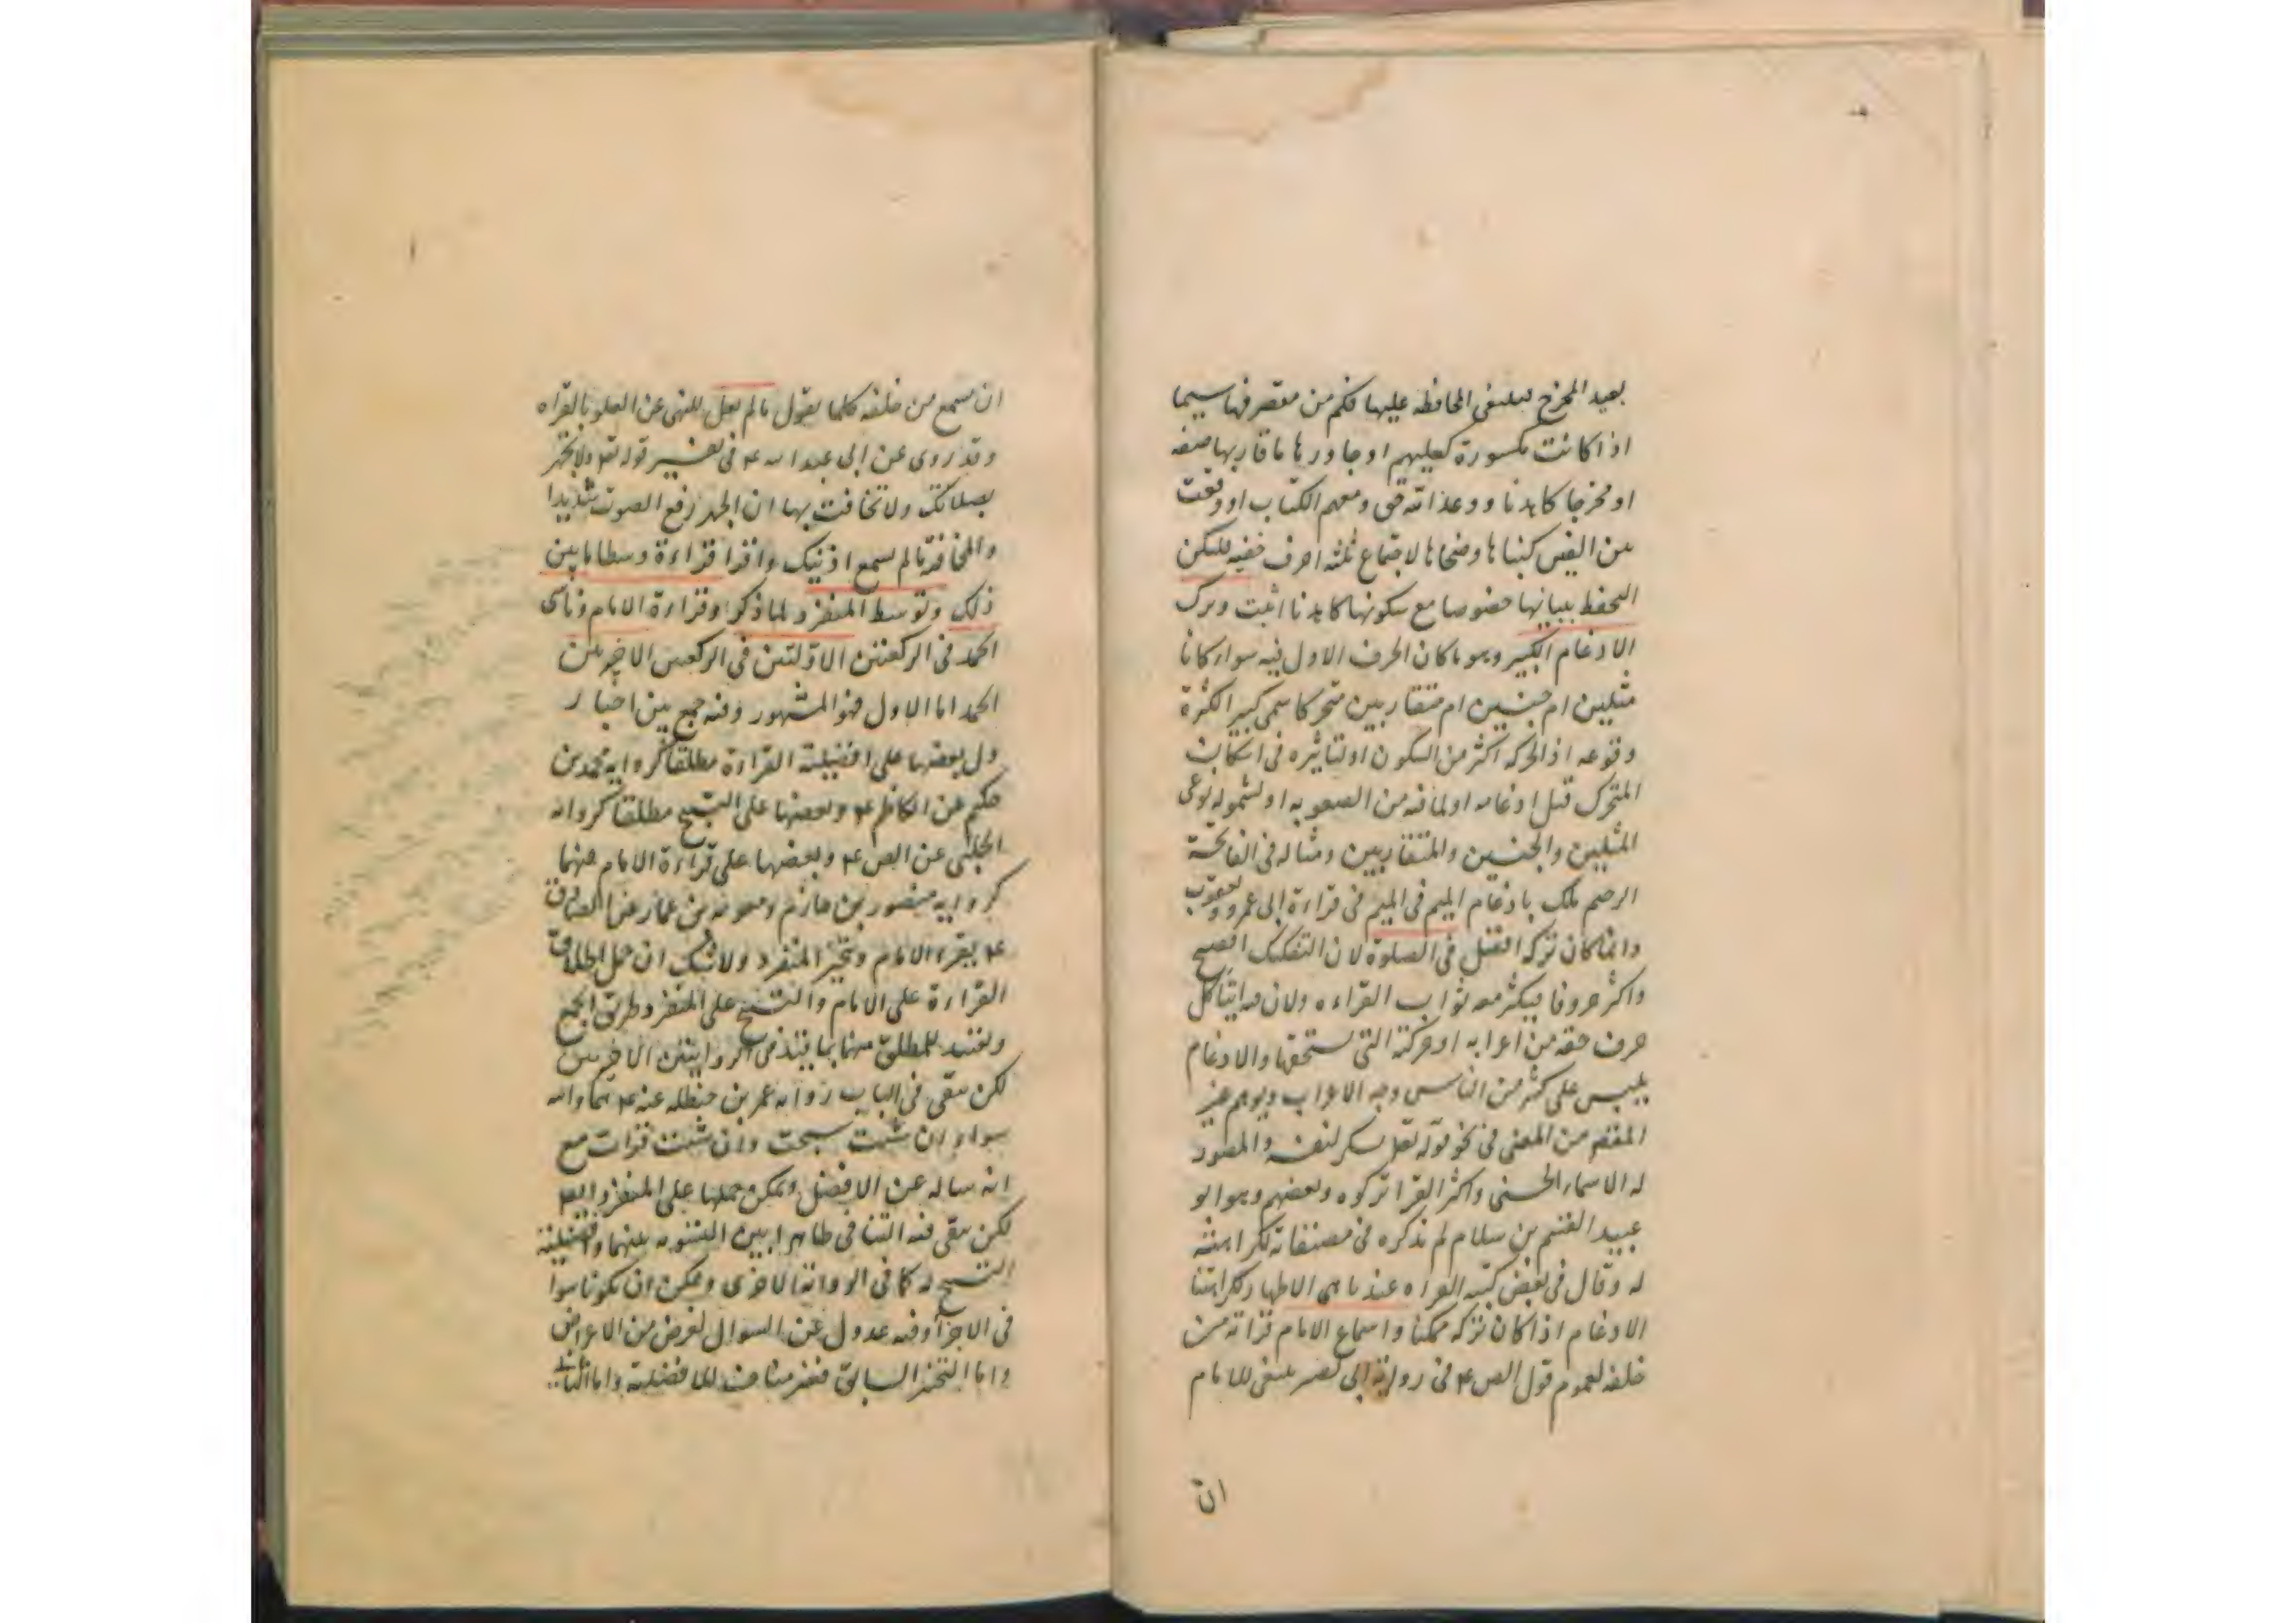 بعيد المخرج فينبغى المحافظه عليها فكم من مقصر فيها سيما
اذا كانت مكسورة كعليهم او جاورها ما قاربها صفه
او مخرجا كاهدنا ووعد الله حق ومعهم الكتاب او وقعت
بين الفين كبناها وضحاها لاجتماع ثلثه احرف خفيه فليكن
التحفظ ببيانها خصوصا مع سكونها كاهدنا اثبت وترك
الادغام الكبير وهو ما كان الحرف الاول فيه سواء كانا
مثلين ام جنسين ام متقاربين متحركا سمى كبيرا لكثرة
وقوعه اذ الحركه اكثر من السكون او لتاثيره فى اسكان
المتحرك قبل ادغامه او لما فيه من الصعوبه او لشموله نوعى
المثلين والجنسين والمتقاربين ومثاله فى الفاتحة
الرحيم ملك بادغام الميم فى الميم فى قراءة ابى عمرو ويعقوب
وانما كان تركه افضل فى الصلوة لان التفكيك افصح
واكثر حروفا فيكثر معه ثواب القراءه ولان فيه ايتاء كل
حرف حقه من اعرابه او حركته التى يستحقها والادغام
يلبس على كثير من الناس وجه الاعراب ويوهم غير
المقصود من المعنى فى نحو قوله تعالى يشكر لنفسه والمصور
له الاسماء الحسنى واكثر القرا تركوه وبعضهم وهو ابو
عبيد القسم بن سلام لم يذكره فى مصنفاته لكراهته
له وقال فى بعض كتبه القراءه عندنا هى الاظهار لكراهتنا
الادغام اذا كان تركه ممكنا واسماع الامام قراته من
خلفه لعموم قول الص ع فى رواية ابى بصير ينبغى للامام
ان
ان يسمع من خلفه كلما يقول ما لم يعل للنهى عن العلو بالقراه
وقد روى عن ابى عبد الله ع فى تفسير قوله تع ولا تجهر
بصلاتك ولا تخافت بها ان الجهر رفع الصوت شديدا
والمخافة ما لم تسمع اذنيك واقرا قراءة وسطا ما بين
ذلك وتوسط المنفرد لما ذكر وقراءة الامام وناسى
الحمد فى الركعتين الاولتين فى الركعتين الاخيرتين
الحمد اما الاول فهو المشهور وفيه جمع بين اخبار
دل بعضها على افضيلية القراءة مطلقا كروايه محمد بن
حكيم عن الكاظم ع وبعضها على التسبيح مطلقا كروايه
الحلبى عن الص ع وبعضها على قراءة الامام فيهما
كروايه منصور بن حازم ومعويه بن عمار عن الصادق
ع يقرء الامام ويتخير المنفرد ولا شك ان حمل اطلاق
القراءة على الامام والتسبيح على المنفرد طريق الجمع
وتقييد للمطلق منها بما قيد فى الروايتين الاخيرتين
لكن يبقى فى الباب روايه عمر بن حنظله عنه ع هما والله
سواء ان شئت سبحت وان شئت قرات مع
انه ساله عن الافضل ويمكن حملها على المنفرد ايضا
لكن يبقى فيه التنافى ظاهرا بين التسويه بينهما وافضيلية
التسبيح له كما فى الرواية الاخرى ويمكن ان يكونا سواء
فى الاجزاء وفيه عدول عن السوال لغرض من الاغراض
واما التخير السابق فغير مناف للافضلية واما الثانى